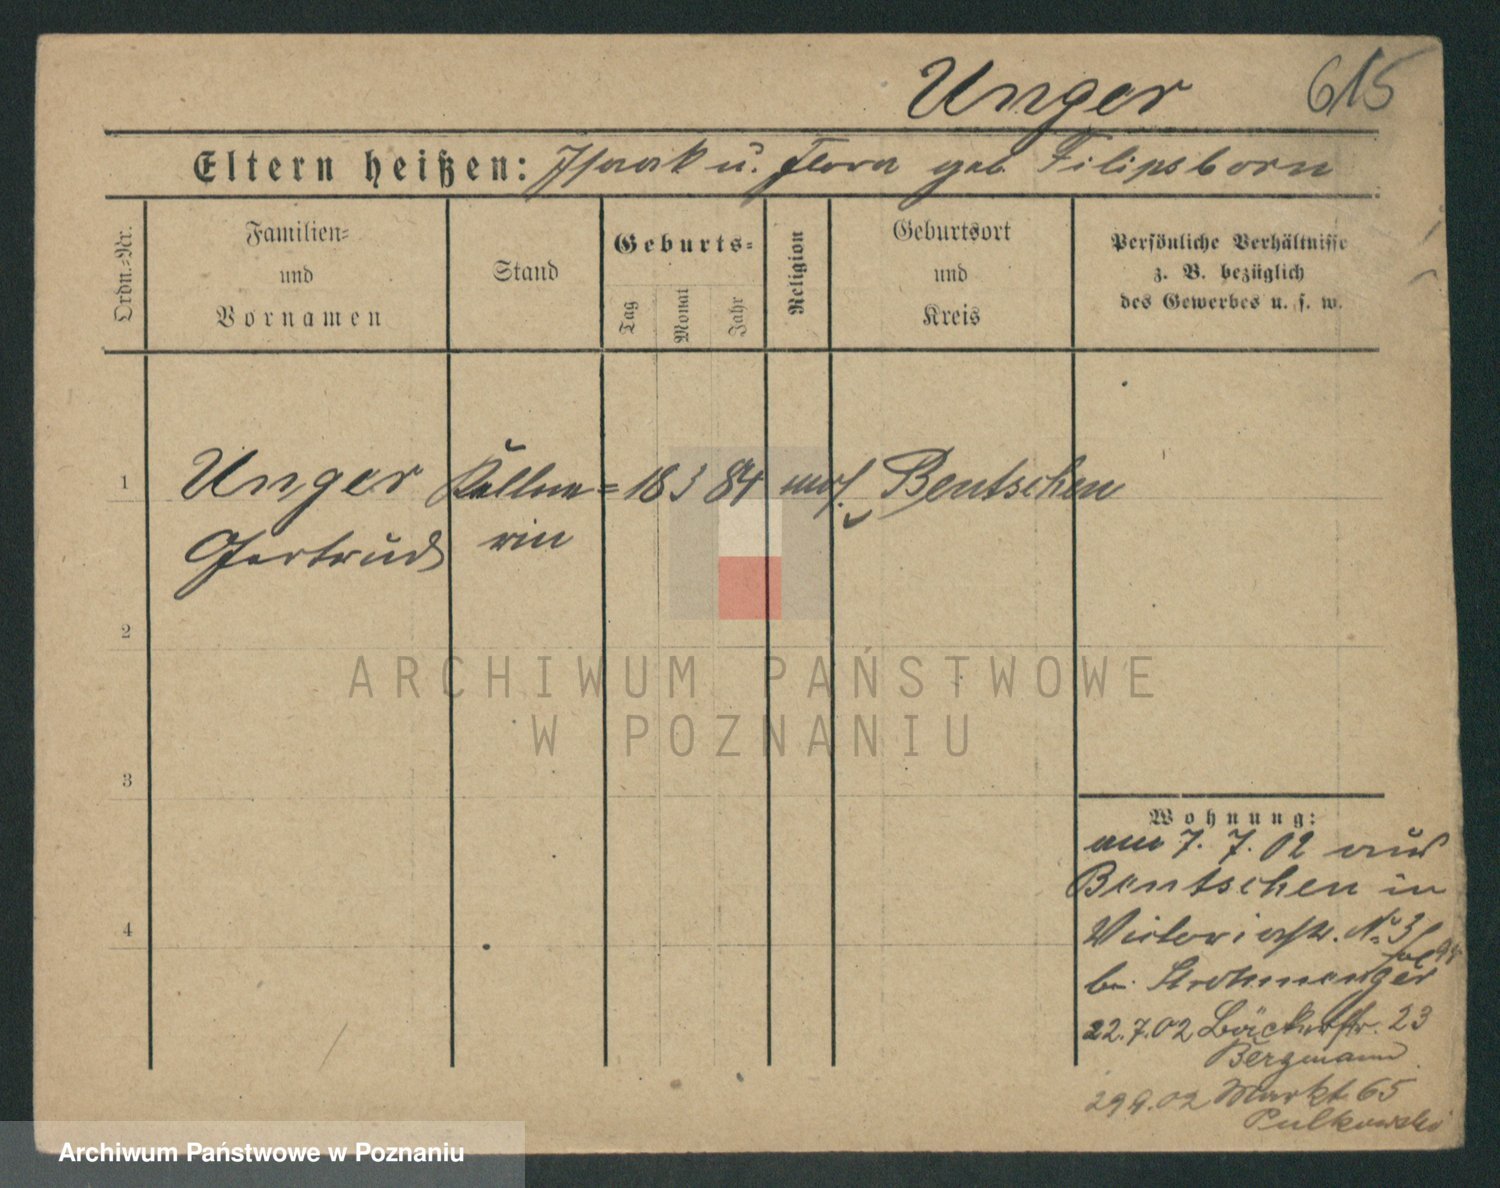 Unger 615
Eltern heißen: Isaak u. Flora geb. Filipsborn
Ordn.-Nr.
Familien-
und
Vornamen
Stand
Geburts-
Tag
Monat
Jahr
Religion
Geburtsort
und
Kreis
Persönliche Verhältnisse
z. B. bezüglich
des Gewerbes u. s. w.
1 Unger Kellne= 18 3 84 mos. Bentschen
Gertrud rin
2
3
4
ARCHIWUM PAŃSTWOWE
W POZNANIU
Wohnung:
am 7. 7. 02 aus
Bentschen in
Victoriastr. No 3
b. Strohmenger
22.7.02 Bäckerstr. 23
Bergmann
29 9.02 Markt 65
Pulkowski
Archiwum Państwowe w Poznaniu